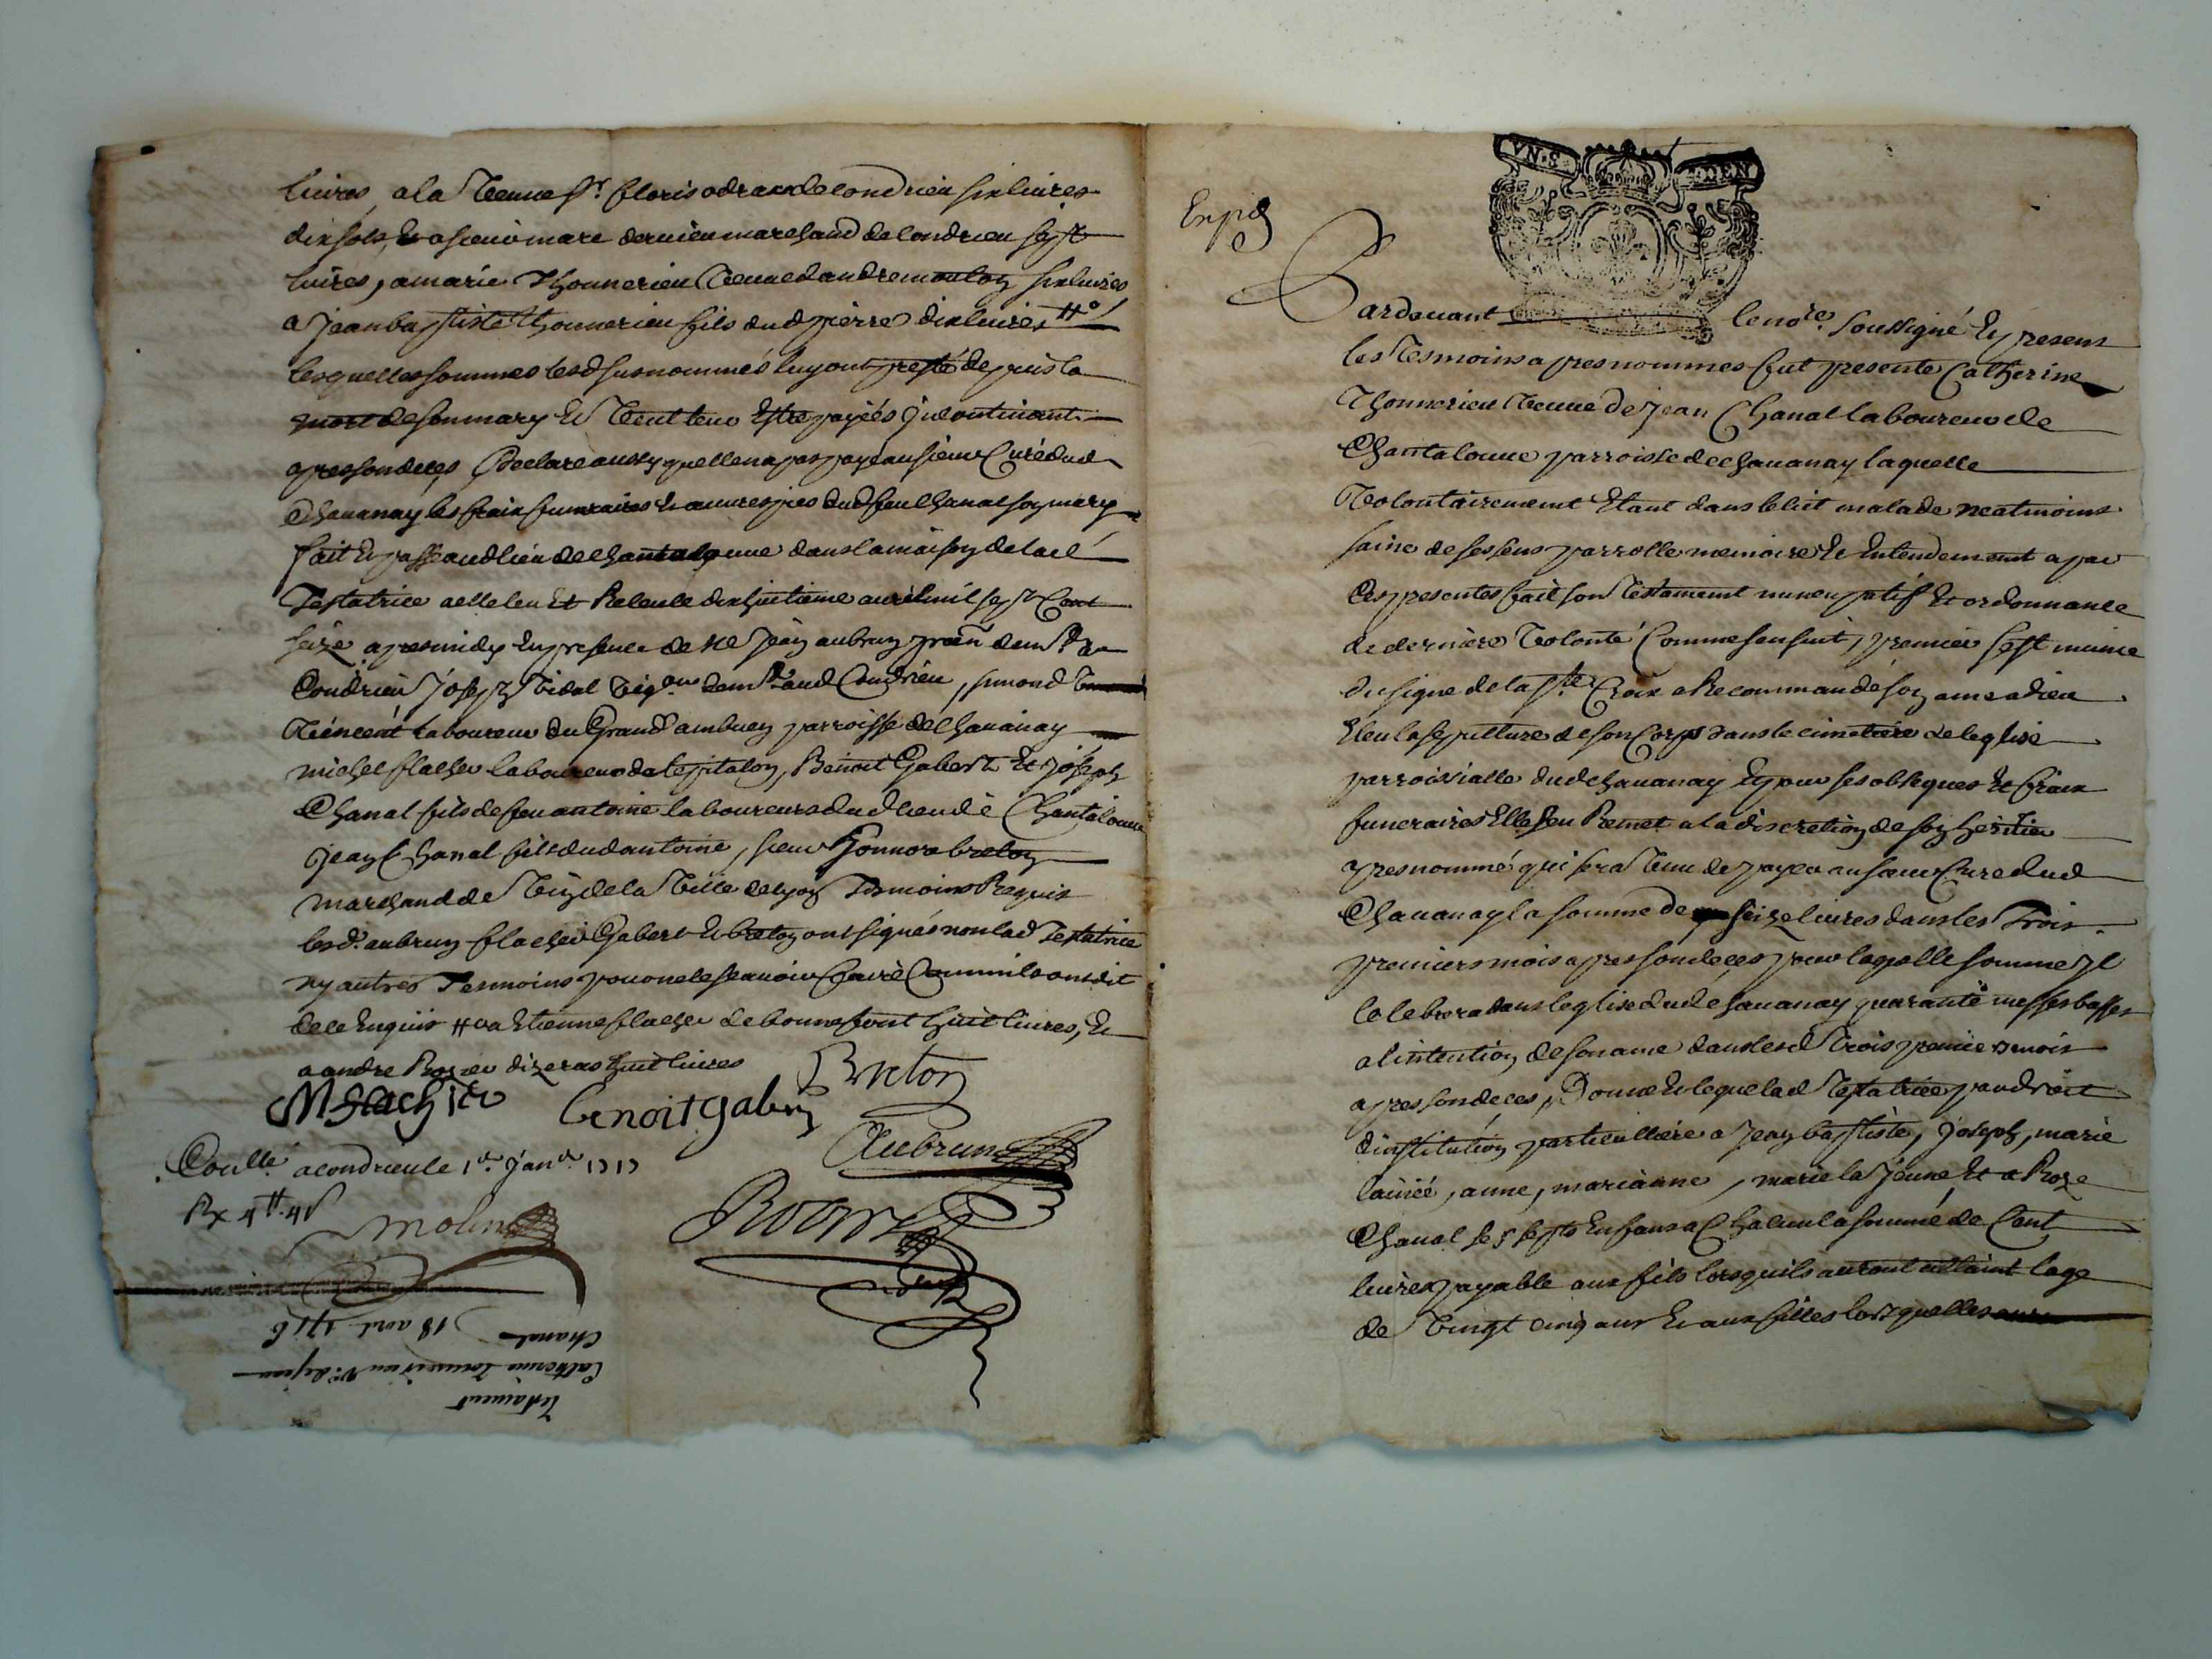 livres, a la veuve sr. floris odrac de condrieu six livres
dix sols, Et a sieur mare dervieu marchand de condrieu sept
livres, a marie Thonnerieu veuve d'andre moulon six livres
a Jean baptiste Thonnerieu fils dud pierre dix livres #o
lesquelles sommes lesd susnommés luy ont presté depuis la
mort de son mary Et veut leur Estre payées jncontinant
apres son deces, Declare aussy quelle na pas payé au sieur Curé dud
Chavanay les fraix funeraires Et autres dud feu Chanal son mary
fait Et passé aud lieu de Chantaloune dans la maison de lad
Testatrice a elle leu Et Releu le dixhuitieme avril mil sept Cent
seize apres midy En presence de Me Jean aubrun demt au
Condrieu Joseph vidal vigon demt aud Condrieu, simond
vincent laboureur du Grand ambuen parroisse de Chavanay
michel flacher laboureur de lepitalon, Benoit Gabert Et Joseph
Chanal fils de feu antoine laboureurs dud lieu de Chantaloune
Jean Chanal fils dud antoine, sieur honnora breton
marchand de vin de la ville de lyon Tesmoins Requis
lesd. aubrun flacher Gabert Et breton ont signés non lad Testatrice
ny autres Tesmoins pour ne le scavoir faire Comm ils ont dit
de ce Enquis # o a Etienne flacher de bonnefont huit livres, Et
a andre Rozier dizeras huit livres
Mflacher benoit gabert Breton
Aubrun
Conllé a condrieu le 1er. janer. 1717
Rx 4# 4s
molin
Testament
Catherine Tonnerieu Ve. de jean
Chanal 18 avril 1716
Expé
Pardevant le nore. soussigné Et presens
les Tesmoins apres nommes fut presente Catherine
Thonnerieu veuve de Jean Chanal laboureur de
Chantaloune parroisse de Chavanay laquelle
Volontairement Etant dans le lict malade neatmoins
saine de ses sens parrolle memoire Et Entendement a par
Ces presentes fait son Testament nuncupatif Et ordonnance
de derniere volonté Comme sensuit, premier sest munie
du signe de la ste Croix a Recommandé son ame a dieu
Eleu la sepulture de son Corps dans le cimetiere de leglise
parroissialle dud Chavanay Et pour ses obseques Et fraix
funeraires Elle sen Remet a la discretion de son heritier
apres nommé qui sera Tenu de payer au sieur Curé dud
Chavanay la somme de seize livres dans les Trois
premiers mois apres son deces pour laquelle somme jl
Celebrera dans leglise dud Chavanay quarante messes basses
a lintention de son ame dans lesd Trois premiers mois
apres son deces, Donne Et legue lad Testatrice par droit
dinstitution particulliere a Jean baptiste, Joseph, marie
lainée, anne, marianne, marie la jeune Et a Roze
Chanal ses sept Enfans a Chacun la somme de Cent
livres payable aux fils lorsquils auront attaint lage
de vingt cinq ans Et aux filles lorsquelles